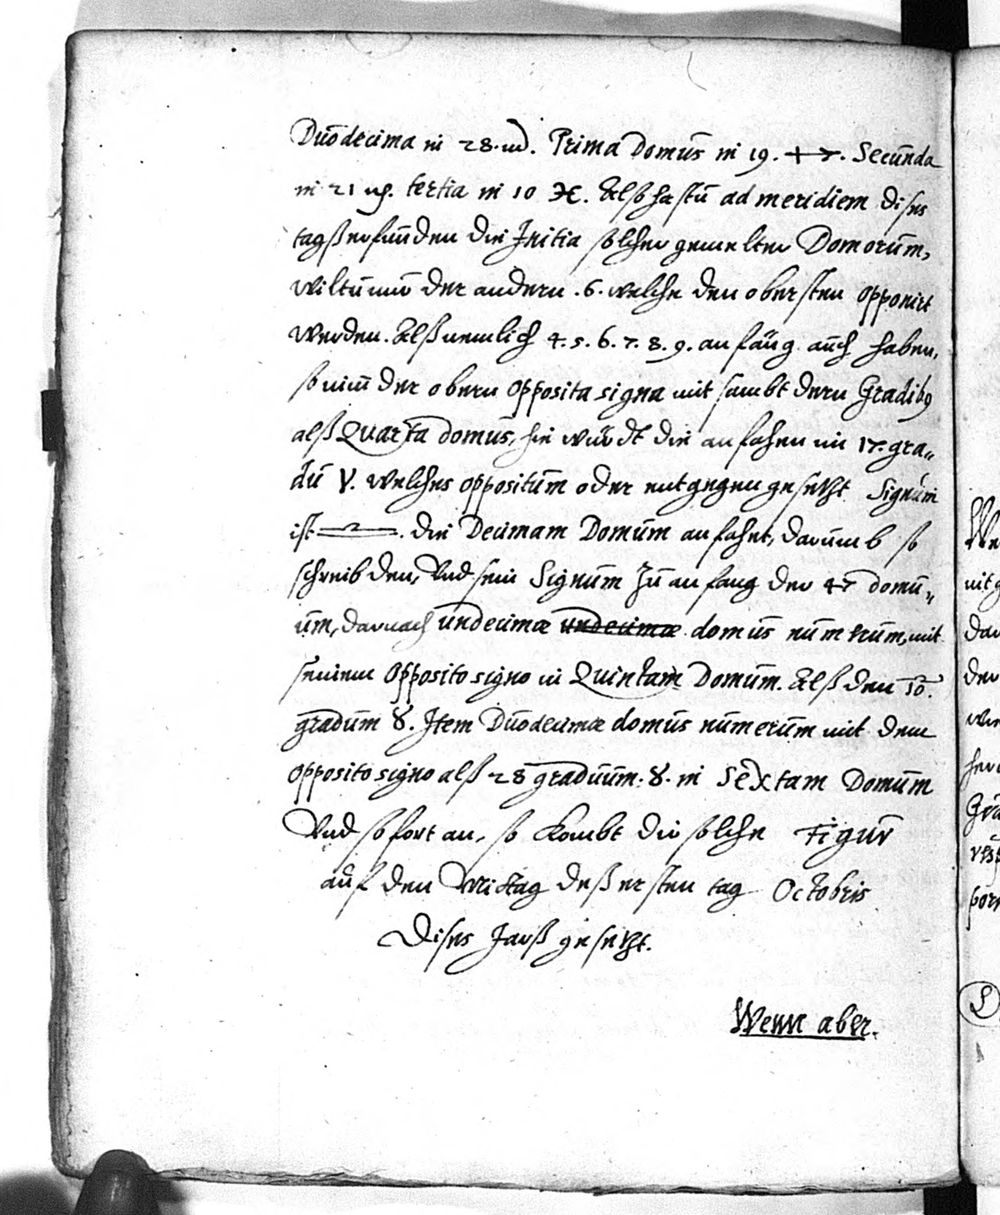 Duodecima in 28. ♏. Prima Domus in 19. ♐. Secunda
in 21 ♑. tertia in 10 ♓. Alß hastu ad meridiem dises
tagß erfunden die Initia solcher gemelter Domorum,
wiltu nun der andern .6. welche den obersten opponirt
werden. Alß nemlich 4. 5. 6. 7. 8. 9. anfäng auch haben,
so nim der obern opposita signa mit sambt dern Gradibus
alß Quarta domus, hie würdt die anfahen im 17. gra„
du ♈. welches oppositum oder entgegen gesetzt Signum
ist ♎. die Decimam Domum anfahet, darumb so
schreib den, Vnd sein Signum zu anfang der 4t domu„
um, darnach undecimæ undecimæ domus numerum, mit
seinem opposito signo in Quintam Domum. Alß den 10.
gradum ♉. Item Duodecimæ domus numerum mit dem
opposito signo alß 28 graduum. ♉. in Sextam Domum
Vnd so fort an, so kombt die solche Figur
auf den Mittag deß ersten tag Octobris
Dises Jarß gesetzt.
Wenn aber.